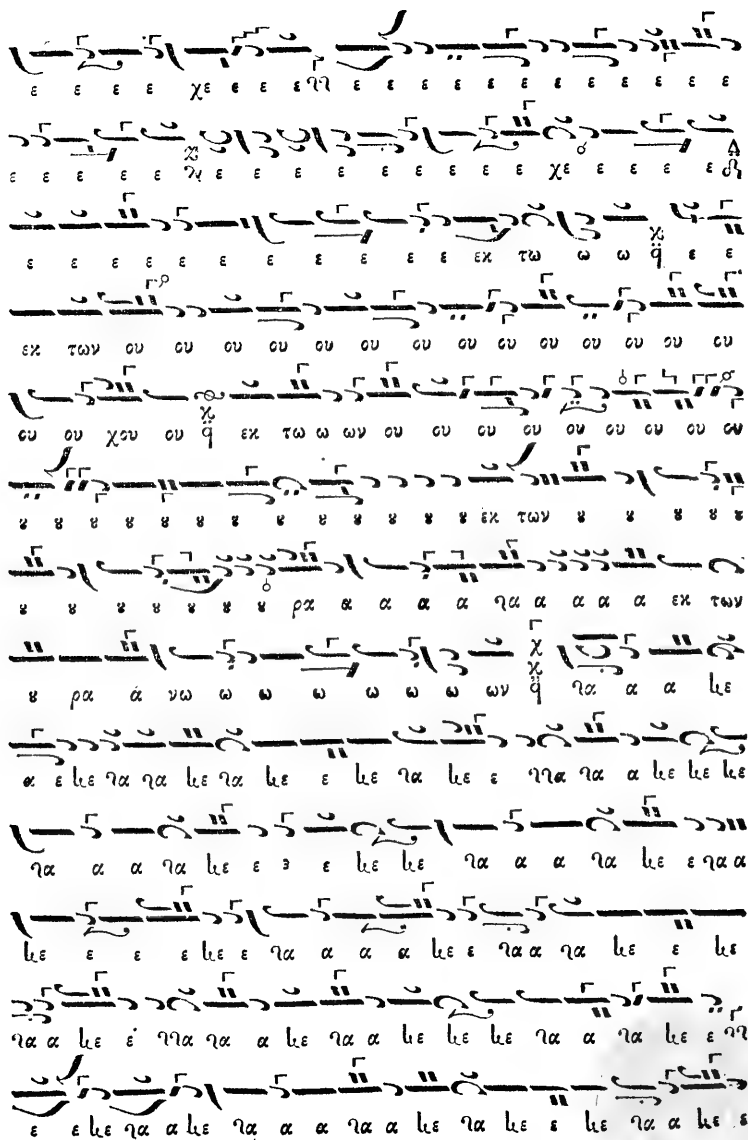 ε ε ε ε χε ε ε ε ε ε ε ε ε ε ε ε ε ε ε ε ε
ε ε ε ε ε ε ε ε ε ε ε ε ε ε ε χε ε ε ε ε
ε ε ε ε ε ε ε ε ε ε ε ε εκ τω ω ω ε ε
εκ των ου ου ου ου ου ου ου ου ου ου ου ου ου
ου ου χου ου εκ τω ω ων ου ου ου ου ου ου ου ου ου
ȣ ȣ ȣ ȣ ȣ ȣ ȣ ȣ ȣ ȣ ȣ ȣ ȣ εκ των ȣ ȣ ȣ ȣ ȣ
ȣ ȣ ȣ ȣ ȣ ȣ ȣ ρα α α α α τα α α α α εκ των
ȣ ρα ά νω ω ω ω ω ω ω ων τα α α κε
α ε κε τα τα κε τα κε ε τα κε ε ττα τα α κε κε κε
τα α α τα κε ε ε ε κε κε τα α α τα κε ε τα α
κε ε ε ε κε ε τα α α α κε ε τα α τα κε ε κε
τα α κε ε ττα τα α κε τα α κε κε κε τα α τα κε ε
ε ε κε τα α κε τα α α τα α κε τα κε ε κε τα α κε ε